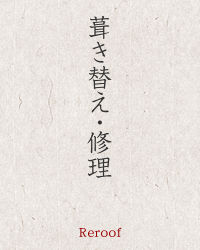 葺き替え・修理
Reroof